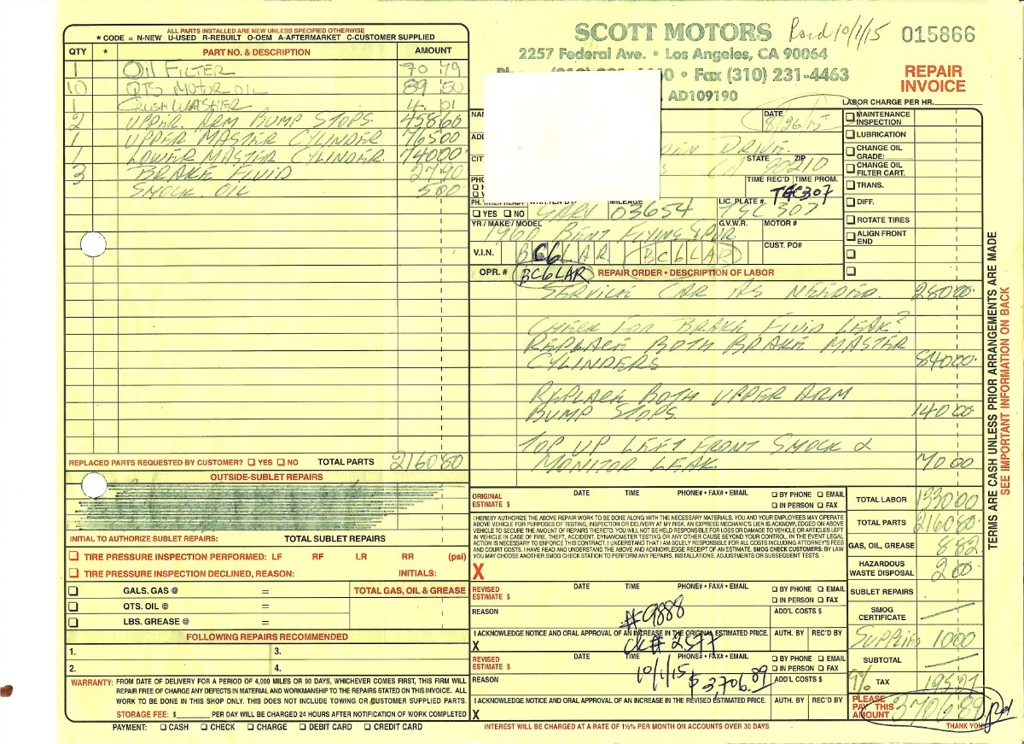 ALL PARTS INSTALLED ARE NEW UNLESS SPECIFIED OTHERWISE
* CODE = N-NEW U-USED R-REBUILT O-OEM A-AFTERMARKET C-CUSTOMER SUPPLIED
QTY * PART NO. & DESCRIPTION AMOUNT
1 OIL FILTER 70 79
10 QTS MOTOR OIL 89 50
1 CRUSH WASHER 4. 01
2 UPPER ARM BUMP STOPS 458 60
1 UPPER MASTER CYLINDER 765 00
1 LOWER MASTER CYLINDER 740 00
3 BRAKE FLUID 27 90
SHOCK OIL 5 00
REPLACED PARTS REQUESTED BY CUSTOMER? YES NO TOTAL PARTS 2160 80
OUTSIDE-SUBLET REPAIRS
INITIAL TO AUTHORIZE SUBLET REPAIRS: TOTAL SUBLET REPAIRS
TIRE PRESSURE INSPECTION PERFORMED: LF RF LR RR (psi)
TIRE PRESSURE INSPECTION DECLINED, REASON: INITIALS:
GALS. GAS @ = TOTAL GAS, OIL & GREASE
QTS. OIL @ =
LBS. GREASE @ =
FOLLOWING REPAIRS RECOMMENDED
1. 3.
2. 4.
WARRANTY: FROM DATE OF DELIVERY FOR A PERIOD OF 4,000 MILES OR 90 DAYS, WHICHEVER COMES FIRST, THIS FIRM WILL
REPAIR FREE OF CHARGE ANY DEFECTS IN MATERIAL AND WORKMANSHIP TO THE REPAIRS STATED ON THIS INVOICE. ALL
WORK TO BE DONE IN THIS SHOP ONLY. THIS DOES NOT INCLUDE TOWING OR CUSTOMER SUPPLIED PARTS.
STORAGE FEE: $ PER DAY WILL BE CHARGED 24 HOURS AFTER NOTIFICATION OF WORK COMPLETED
PAYMENT: CASH CHECK CHARGE DEBIT CARD CREDIT CARD
SCOTT MOTORS
Rcvd 10/1/15 015866
2257 Federal Ave. • Los Angeles, CA 90064
• Fax (310) 231-4463
AD109190
REPAIR
INVOICE
LABOR CHARGE PER HR.
DATE
8/26/15
DRIVE
STATE ZIP
CA
TIME REC'D TIME PROM.
TGC307
YES NO GARY 03654 LIC. PLATE #. TGC 307
YR / MAKE / MODEL G.V.W.R. MOTOR #
1960 BENT FLYING SPUR
V.I.N. BC6LAR (BC6LAR) CUST. PO#
OPR. # BC6LAR REPAIR ORDER • DESCRIPTION OF LABOR
MAINTENANCE INSPECTION
LUBRICATION
CHANGE OIL GRADE:
CHANGE OIL FILTER CART.
TRANS.
DIFF.
ROTATE TIRES
ALIGN FRONT END
SERVICE CAR AS NEEDED. 280 00
CHECK FOR BRAKE FLUID LEAK?
REPLACE BOTH BRAKE MASTER
CYLINDERS 840 00
REPLACE BOTH UPPER ARM
BUMP STOPS 140 00
TOP UP LEFT FRONT SHOCK &
MONITOR LEAK 70 00
TERMS ARE CASH UNLESS PRIOR ARRANGEMENTS ARE MADE
SEE IMPORTANT INFORMATION ON BACK
ORIGINAL ESTIMATE $ DATE TIME PHONE# • FAX# • EMAIL BY PHONE EMAIL IN PERSON FAX
TOTAL LABOR 1330 00
I HEREBY AUTHORIZE THE ABOVE REPAIR WORK TO BE DONE ALONG WITH THE NECESSARY MATERIALS. YOU AND YOUR EMPLOYEES MAY OPERATE
ABOVE VEHICLE FOR PURPOSES OF TESTING, INSPECTION OR DELIVERY AT MY RISK. AN EXPRESS MECHANIC'S LIEN IS ACKNOWLEDGED ON ABOVE
VEHICLE TO SECURE THE AMOUNT OF REPAIRS THERETO. YOU WILL NOT BE HELD RESPONSIBLE FOR LOSS OR DAMAGE TO VEHICLE OR ARTICLES LEFT
IN VEHICLE IN CASE OF FIRE, THEFT, ACCIDENT, DYNAMOMETER TESTING OR ANY OTHER CAUSE BEYOND YOUR CONTROL. IN THE EVENT LEGAL
ACTION IS NECESSARY TO ENFORCE THIS CONTRACT, I UNDERSTAND THAT I AM SOLELY RESPONSIBLE FOR ALL COSTS INCLUDING ATTORNEY'S FEES
AND COURT COSTS. I HAVE READ AND UNDERSTAND THE ABOVE AND ACKNOWLEDGE RECEIPT OF AN ESTIMATE. SMOG CHECK CUSTOMERS: BY LAW
YOU MAY CHOOSE ANOTHER SMOG CHECK STATION TO PERFORM ANY REPAIRS, INSTALLATIONS, ADJUSTMENTS OR SUBSEQUENT TESTS.
X
TOTAL PARTS 2160 80
GAS, OIL, GREASE 8 82
HAZARDOUS WASTE DISPOSAL 2 00
REVISED ESTIMATE $ DATE TIME PHONE# • FAX# • EMAIL BY PHONE EMAIL IN PERSON FAX
SUBLET REPAIRS
REASON ADD'L COSTS $
#9888
SMOG CERTIFICATE
I ACKNOWLEDGE NOTICE AND ORAL APPROVAL OF AN INCREASE IN THE ORIGINAL ESTIMATED PRICE. AUTH. BY REC'D BY
X CK # 2577
SUPPLIES 10 00
REVISED ESTIMATE $ DATE TIME PHONE# • FAX# • EMAIL BY PHONE EMAIL IN PERSON FAX
SUBTOTAL
10/1/15 $3,706.89
REASON ADD'L COSTS $
9% TAX 195 27
I ACKNOWLEDGE NOTICE AND ORAL APPROVAL OF AN INCREASE IN THE REVISED ESTIMATED PRICE. AUTH. BY REC'D BY
X
PLEASE PAY THIS AMOUNT 3706 89 Pd
INTEREST WILL BE CHARGED AT A RATE OF 1½% PER MONTH ON ACCOUNTS OVER 30 DAYS
THANK YOU